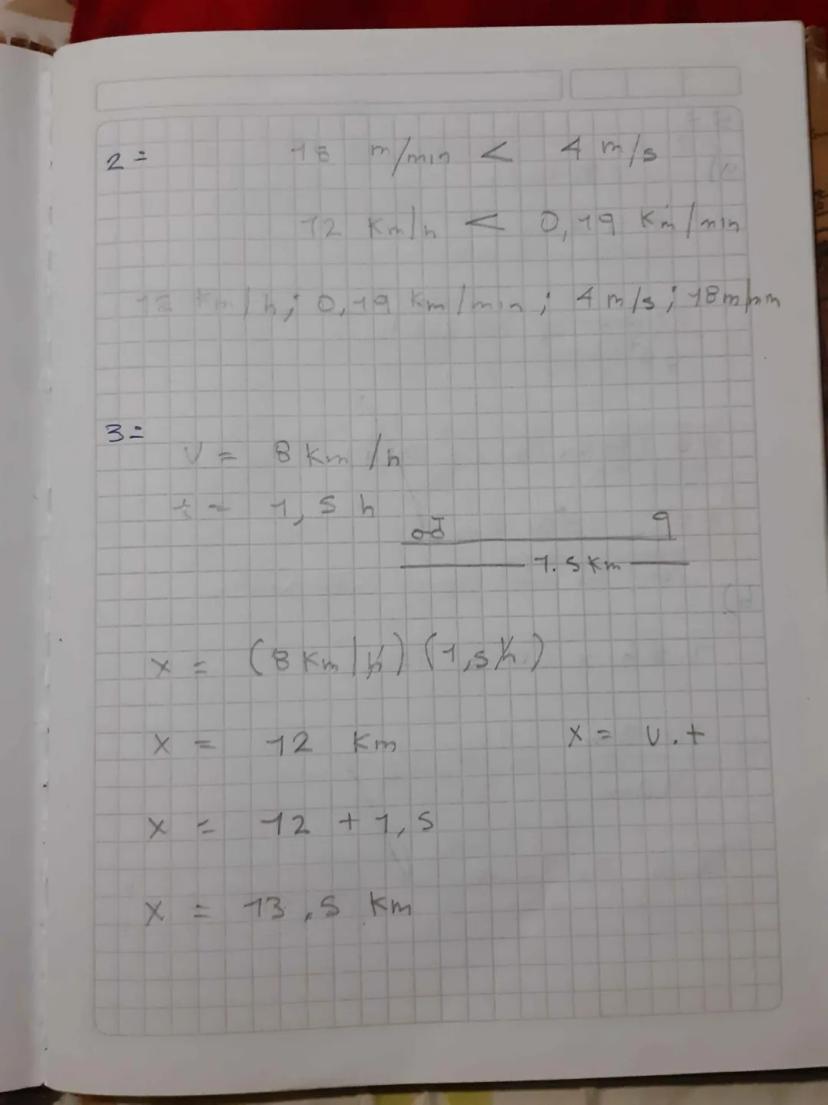 2=
18 m/min < 4 m/s
12 Km/h < 0,19 Km/min
12 Km/h; 0,19 Km/min; 4 m/s; 18m/mm
3=
v = 8 Km/h
t = 1,5 h
1.5 Km
x = (8 Km/h) (1,5 h)
x = 12 Km
x = v.t
x = 12 + 1,5
x = 13,5 Km